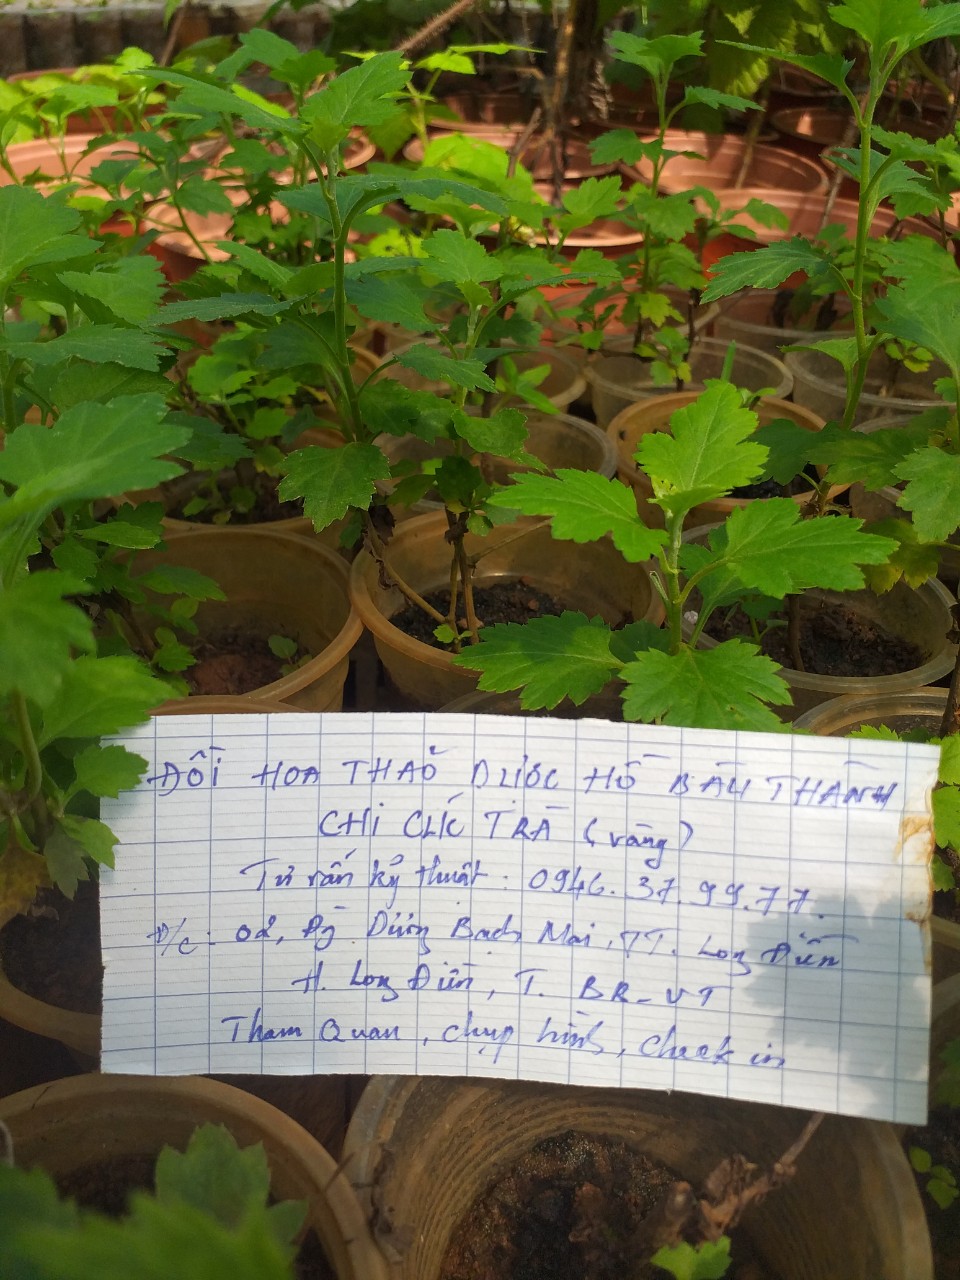 ĐỒI HOA THẢO DƯỢC HỒ BẦU THÀNH
CHI CÚC TRÀ (vàng)
Tư vấn kỹ thuật: 0946.37.99.77.
Đ/c: 02, Đg. Dương Bạch Mai, TT. Long Điền
H. Long Điền, T. BR-VT
Tham Quan, chụp hình, check in